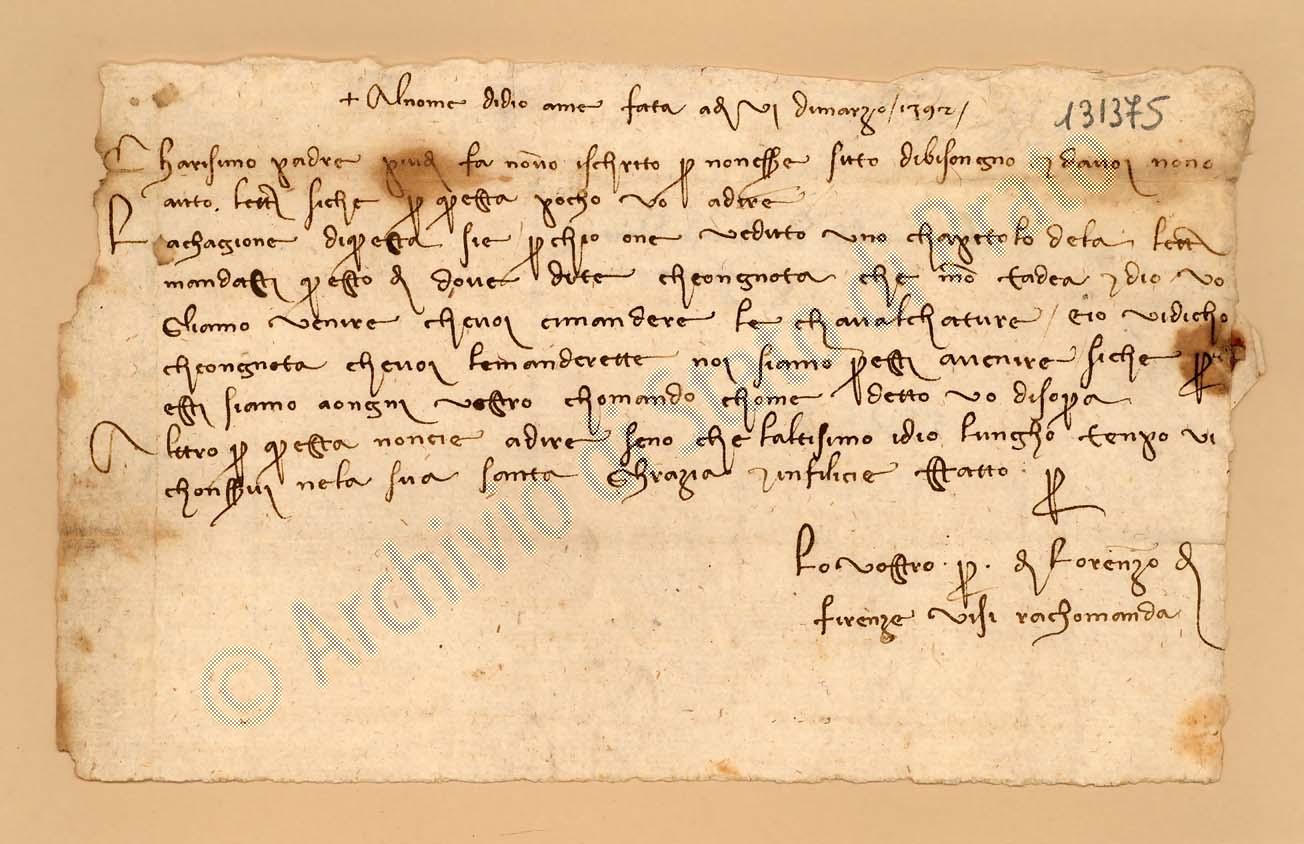 + Al nome didio ame fata adi VI dimarzo / 1392 /
131375
Charisimo padre piudi fa nonvo ischritto p nonesse sutto dibisongno e davoi nono
auto lettr siche p questa pocho vo adire
Lachagione diquesta sie p chio one veduto uno chapitolo dela lettr
mandasti questo di dove dite cheongnota che mo tadea e dio vo
Gliamo venire chevoi cimandere le chavalchature / eio vidicho
cheongnota chevoi lemanderette noi siamo presti avenire siche pre
esti siamo aongni vostro chomando chome detto vo disopra
Altro p questa noncie adire seno che laltisimo idio lungho tenpo vi
chonservi nela sua santa Ghrazia e infilicie istatto p
Lo vostro . p . di Lorenzo di
firenze visi rachomanda
© Archivio di Stato di Prato